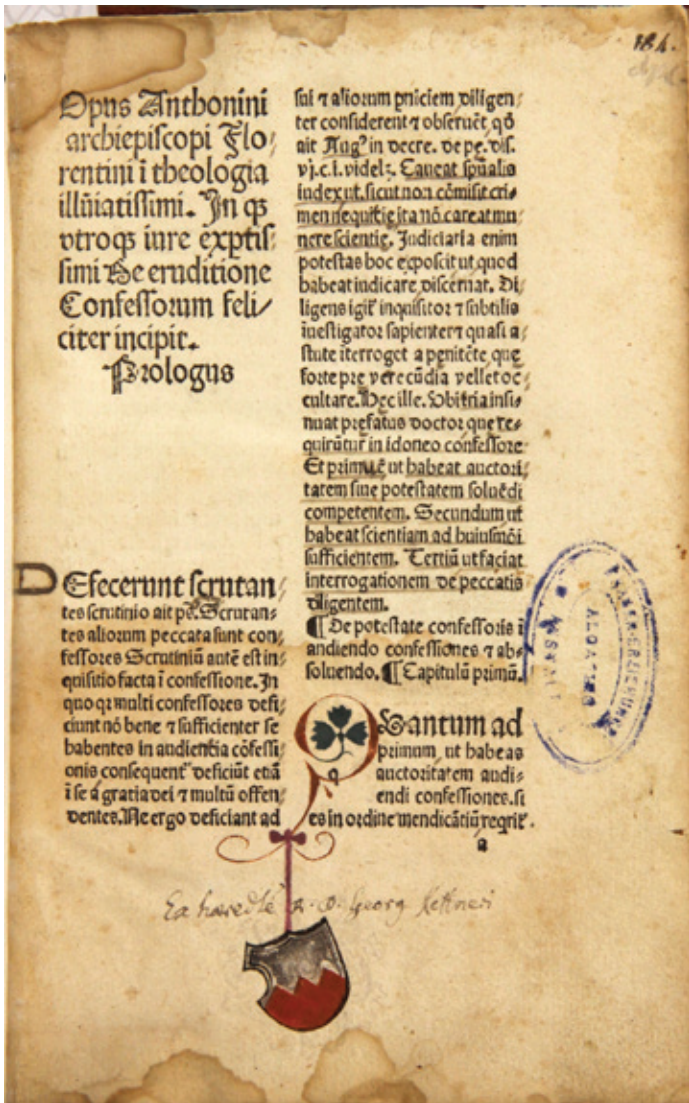 184.
Opus Anthonini
archiepiscopi Flo⸗
rentini ī theologia
illūiatissimi. In qꝫ
vtroqꝫ iure exptis⸗
simi De eruditione
Confessorum feli⸗
citer incipit.
Prologus
DEfecerunt scrutan⸗
tes scrutinio ait pš. Scrutan⸗
tes aliorum peccata sunt con⸗
fessores Scrutiniū autē est in⸗
quisitio facta ī confessione. In
quo qꝛ multi confessores defi⸗
ciunt nō bene ⁊ sufficienter se
habentes in audientia cōfessi
onis consequent᷒ deficiūt etiā
ī se a gratia dei ⁊ multū offen⸗
dentes. Ne ergo deficiant ad
sui ⁊ aliorum pniciem diligen⸗
ter considerent ⁊ obseruēt, qō
ait Augꝰ in decre. de pe. dis.
vj. c. i. videlꝫ. Caueat spūalis
iudex ut. sicut non cōmisit cri⸗
men nequitię ita nō careat mu⸗
nere scientię. Judiciaria enim
potestas hoc exposcit ut, quod
habeat iudicare, discernat. Di⸗
ligens igiť inquisitor ⁊ subtilis
īuestigator sapienter ⁊ quasi a⸗
stute īterroget a penitēte que
forte prę verecūdia vellet oc⸗
cultare. Hec ille. Vbi tria insi⸗
nuat prefatus doctor que re⸗
quirūtur in idoneo confessore
Et primū ē ut habeat auctori⸗
tatem siue potestatem soluēdi
competentem. Secundum ut
habeat scientiam ad huiusmōi
sufficientem. Tertiū ut faciat
interrogationem de peccatis
diligentem.
¶ De potestate confessoris ī
audiendo confessiones ⁊ ab⸗
soluendo. ¶ Capitulū primū.
QVantum ad
primum, ut habeas
auctoritatem audi⸗
endi confessiones. si
es in ordine mendicātiū reqriť.
a
Georg